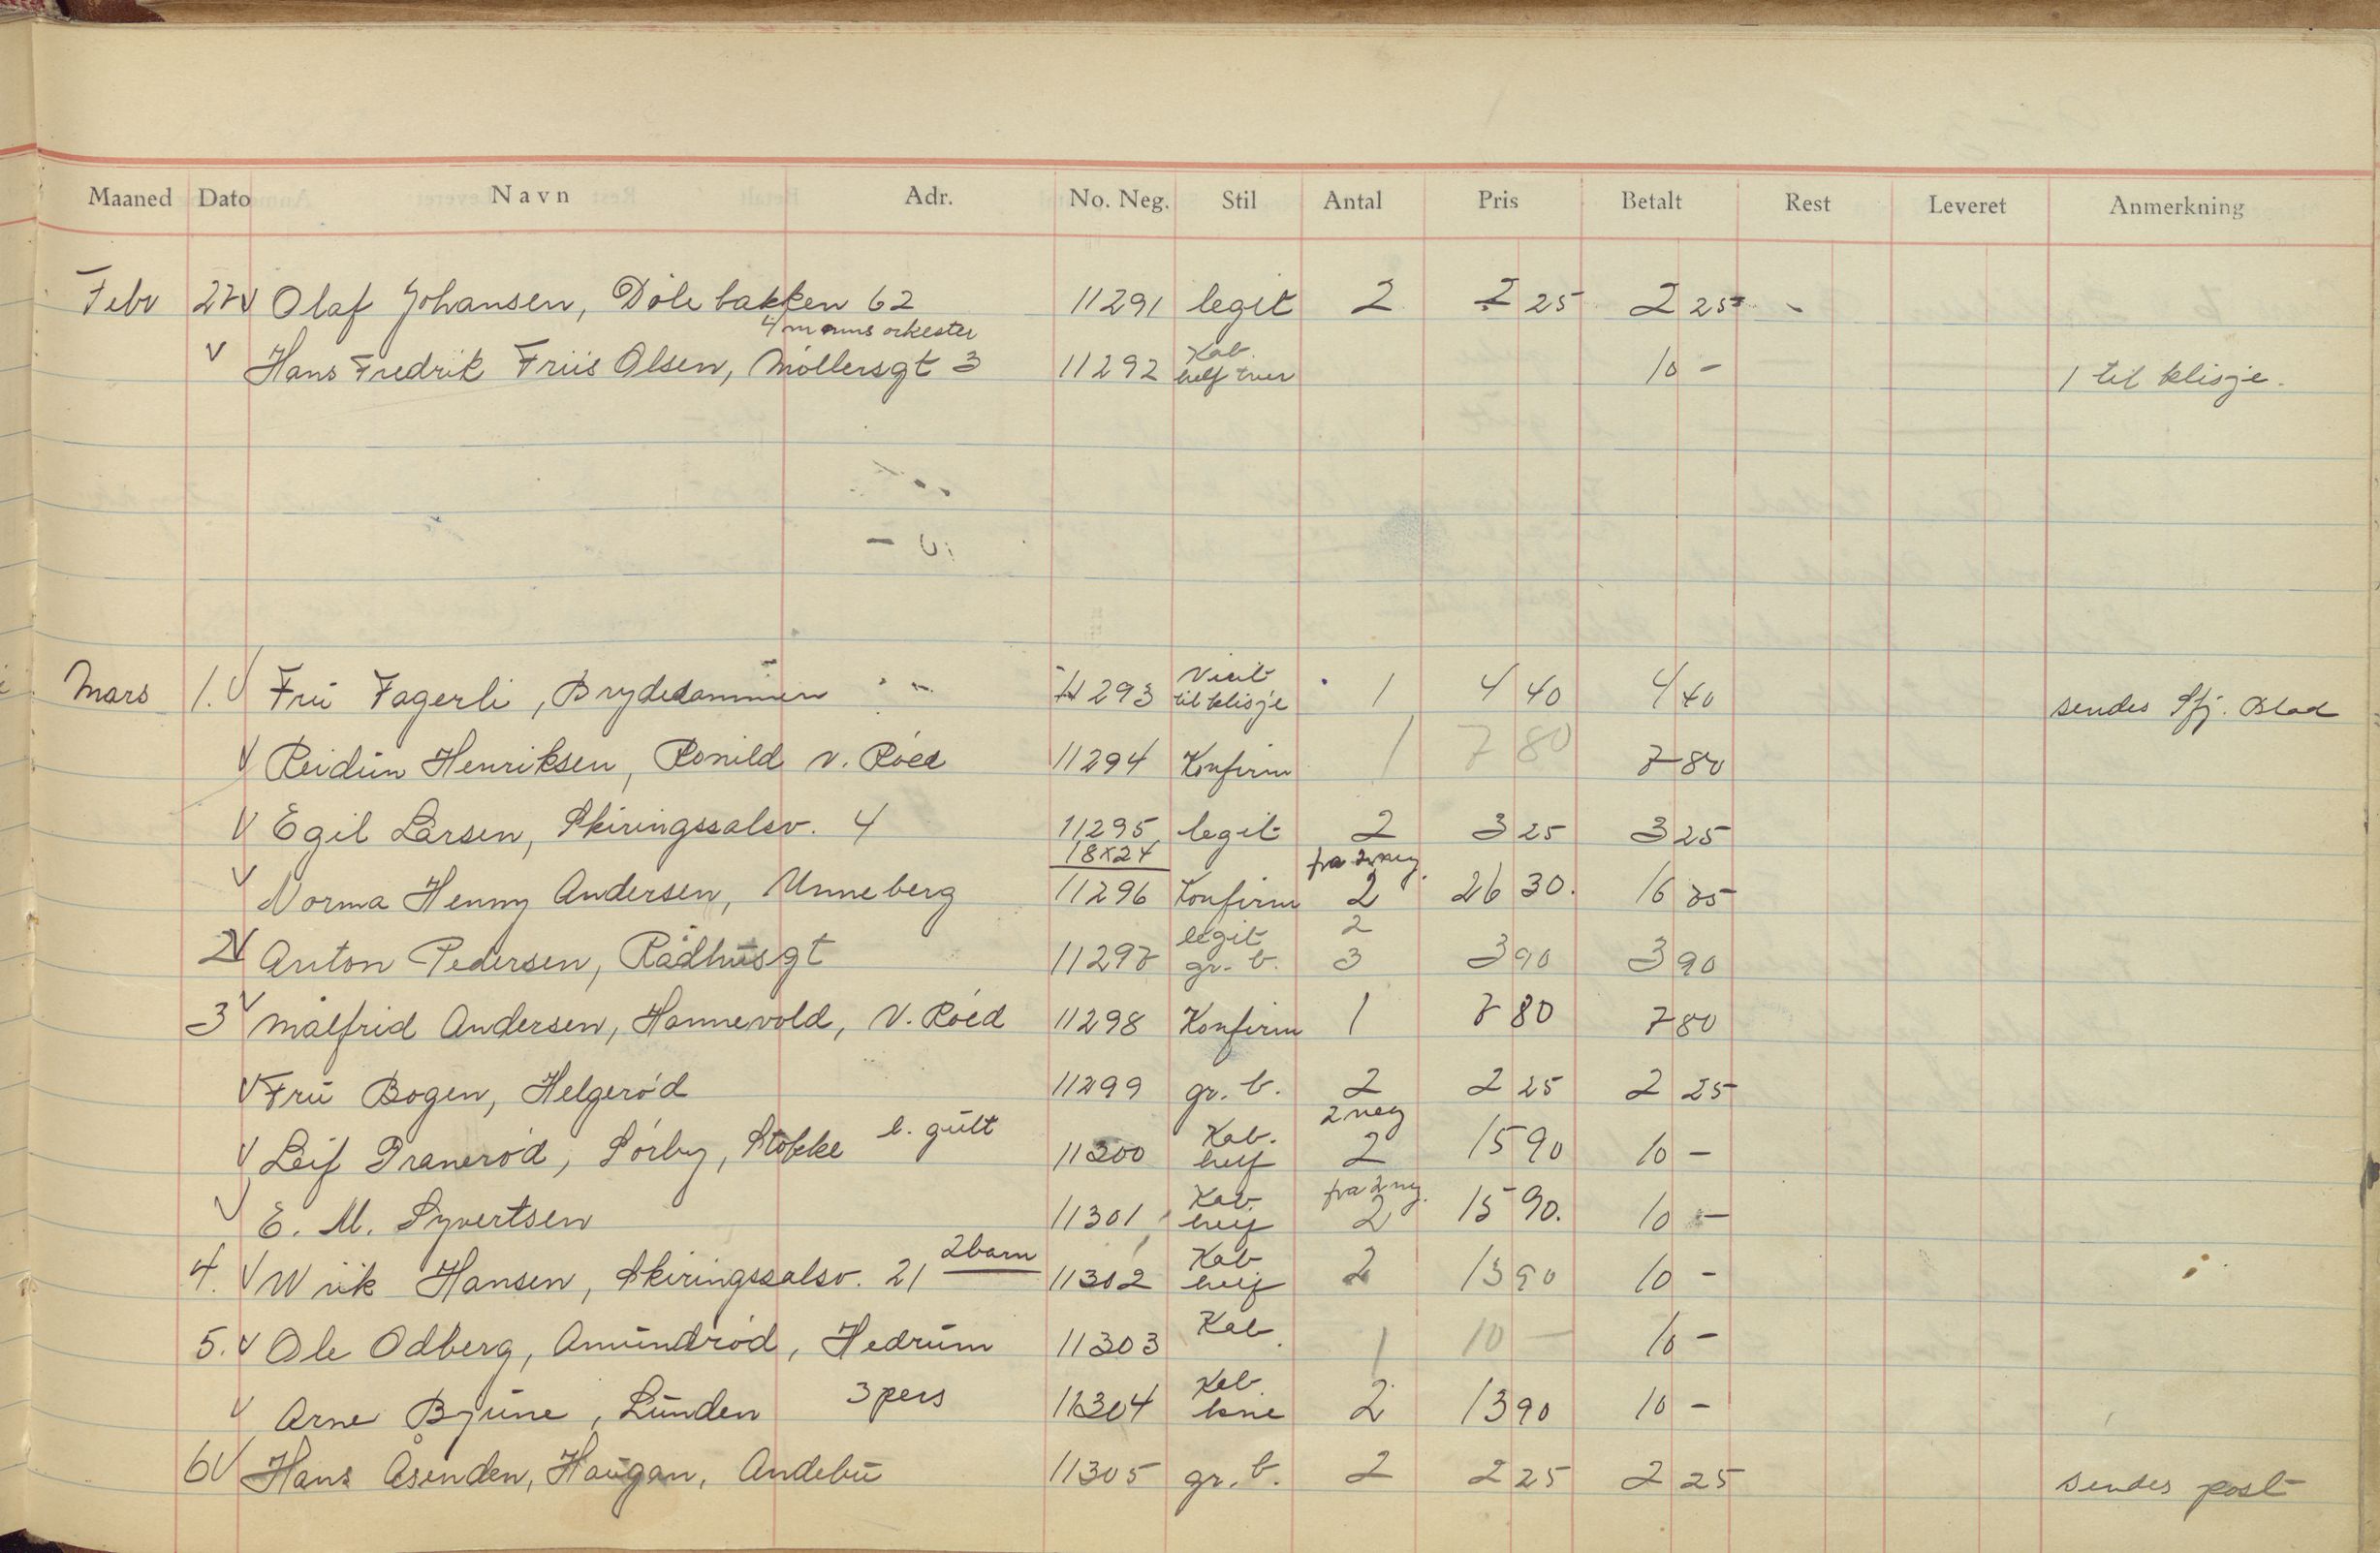 Maaned Dato Navn Adr. No. Neg. Stil Antal Pris Betalt Rest Leveret Anmerkning
Febr 27 V Olaf Johansen, Dølebakken 62 11291 legit 2 2 25 2 25 -
4 manns orkester
V Hans Fredrik Friis Olsen, Møllersgt 3 11292 Kab. 10 - 1 til klisje.
Mars 1. V Fru Fagerli, Brydedammen 11293 Visit til klisje 1 4 40 4 40 sendes Sfj. Blad
V Reidun Henriksen, Ronild v. Råed 11294 Konfirm 1 7 80 7 80
V Egil Larsen, Skiringssalsv. 4 11295 legit 2 3 25 3 25
18x24 fra 2 neg.
V Norma Henny Andersen, Unneberg 11296 Konfirm 2 26 30. 16 25
legit 2
2 V Anton Pedersen, Rådhusgt 11297 gr. b. 3 3 90 3 90
3 V Målfrid Andersen, Hannevold, V. Råed 11298 Konfirm 1 7 80 7 80
V Fru Bogen, Helgerød 11299 gr. b. 2 2 25 2 25
2 neg
V Leif Tranerød, Sørby, Stokke b. gutt 11300 Kab. 2 15 90 10 -
fra 2 neg.
V E. M. Syvertsen 11301 Kab. 2 15 90. 10 -
2 barn
4. V Wiik Hansen, Skiringssalsv. 21 11302 Kab 2 13 90 10 -
5. V Ole Odberg, Amundrød, Hedrum 11303 Kab. 1 10 - 10 -
V Arne Bjune, Lunden 3 pers 11304 Kab. 2 13 90 10 -
6 V Hans Åsenden, Haugan, Andebu 11305 gr. b. 2 2 25 2 25 sendes post